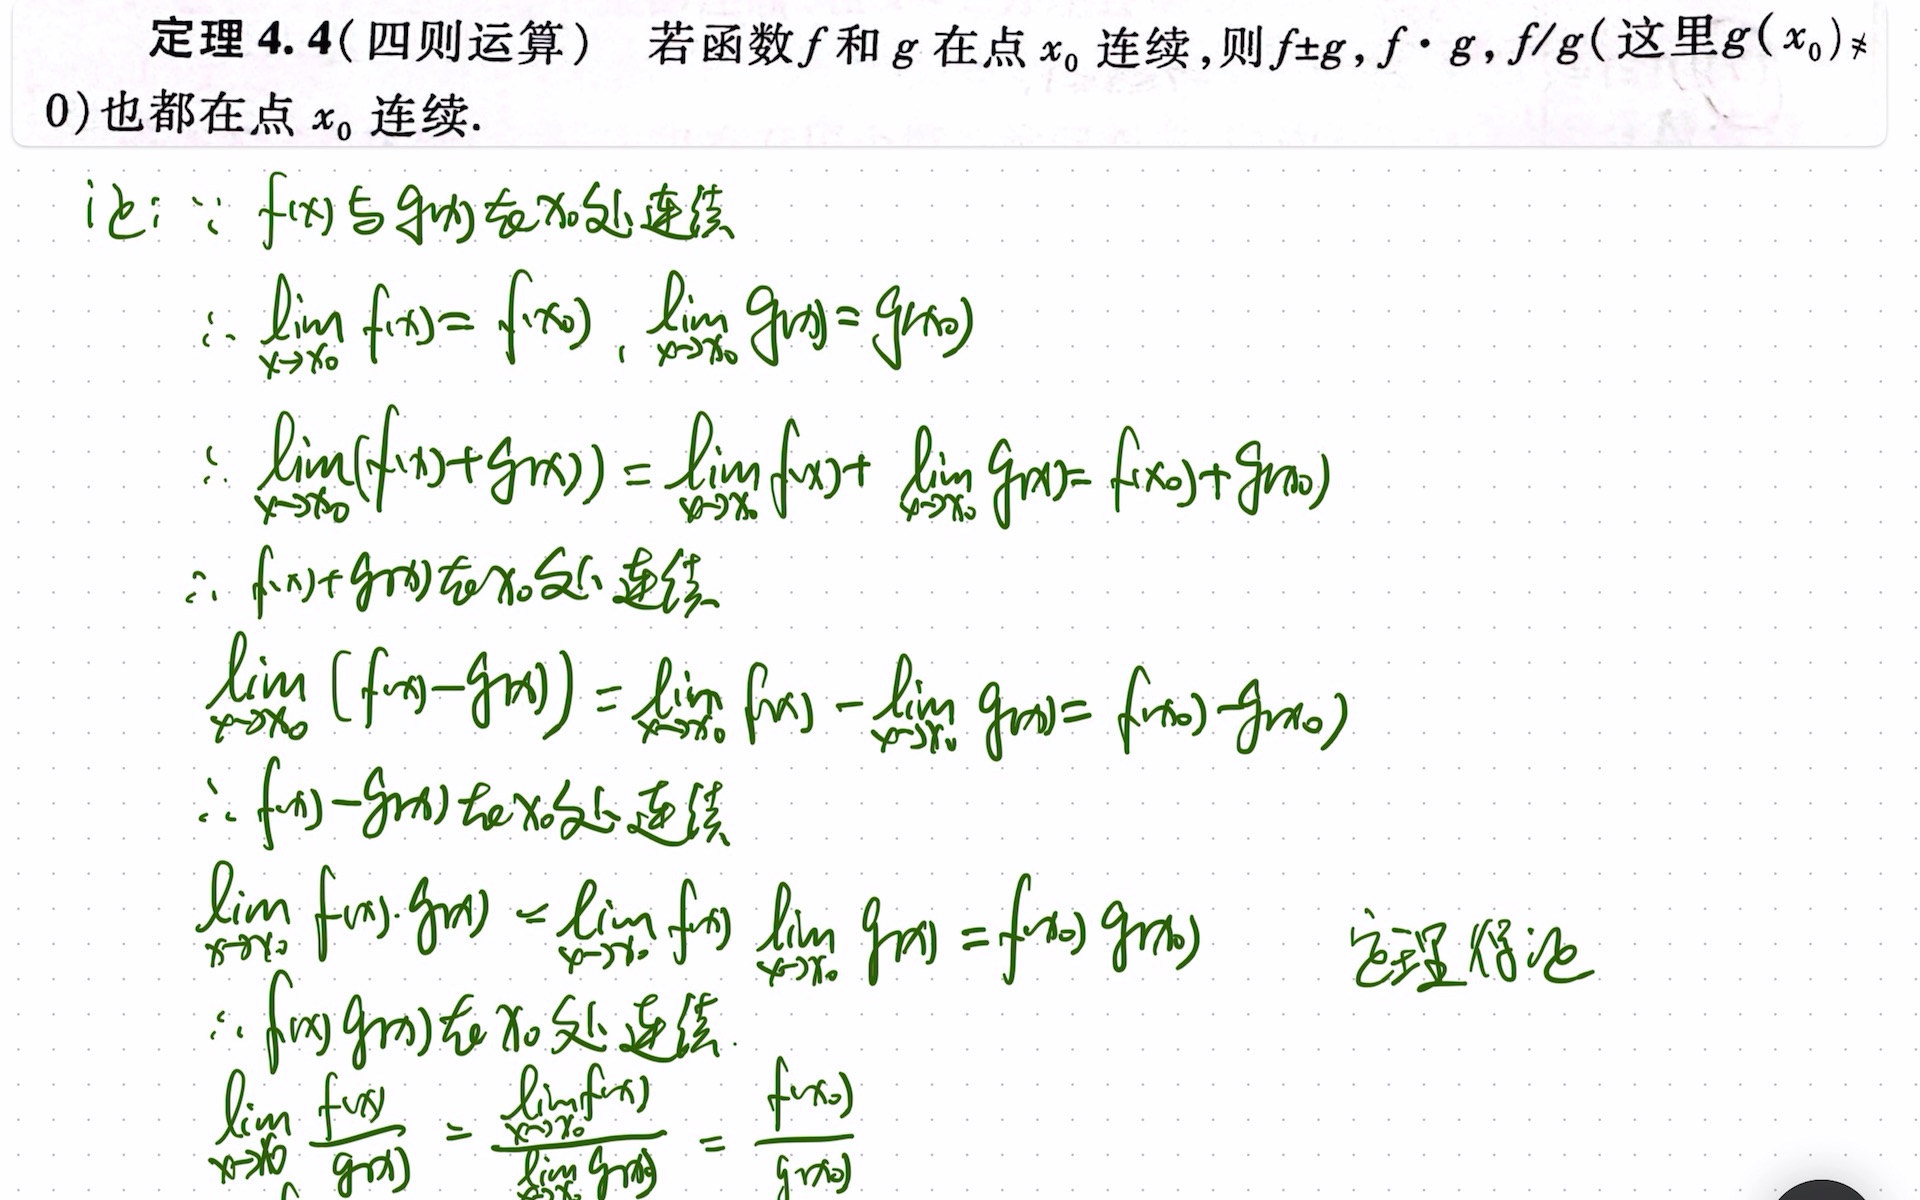 定理 4.4(四则运算) 若函数 f 和 g 在点 x₀ 连续,则 f±g, f·g, f/g(这里g(x₀)≠
0)也都在点 x₀ 连续.
证: ∵ f(x)与g(x)在x₀处连续
∴ lim_{x→x₀} f(x) = f(x₀), lim_{x→x₀} g(x) = g(x₀)
∴ lim_{x→x₀} (f(x)+g(x)) = lim_{x→x₀} f(x) + lim_{x→x₀} g(x) = f(x₀)+g(x₀)
∴ f(x)+g(x)在x₀处连续
lim_{x→x₀} (f(x)-g(x)) = lim_{x→x₀} f(x) - lim_{x→x₀} g(x) = f(x₀)-g(x₀)
∴ f(x)-g(x)在x₀处连续
lim_{x→x₀} f(x)·g(x) = lim_{x→x₀} f(x) lim_{x→x₀} g(x) = f(x₀) g(x₀) 定理得证
∴ f(x)g(x)在x₀处连续.
lim_{x→x₀} f(x)/g(x) = lim_{x→x₀} f(x) / lim_{x→x₀} g(x) = f(x₀)/g(x₀)